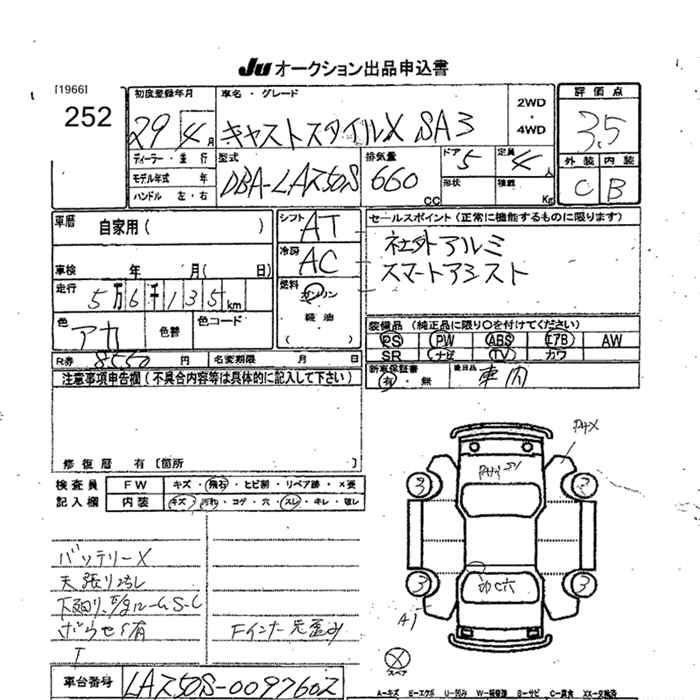 Ju オークション出品申込書
[1966]
252
初度登録年月
29 4月
車名・グレード
キャストスタイルX SA3
2WD
・
4WD
評価点
3.5
外装 内装
C B
ディーラー・並行
モデル年式 年
ハンドル 左・右
型式
DBA-LA250S
排気量
660
CC
ドア
5
形状
定員
4
人
積載
Kg
車暦
自家用( )
シフト
AT
セールスポイント(正常に機能するものに限ります)
社外アルミ
スマートアシスト
冷房
AC
車検 年 月( 日)
走行
5万6千135km
燃料
ガソリン
軽油
( )
色
アカ
色替
色コード
装備品(純正品に限り○を付けてください)
PS PW ABS エアB AW
SR ナビ TV カワ
R券 8550 円
名変期限 月 日
新車保証書
有・無
後日品
車内
注意事項申告欄(不具合内容等は具体的に記入して下さい)
修復歴 有[箇所 ]
検査員
記入欄
FW
キズ・飛石・ヒビ割・リペア跡・×要
内装
キズ・汚れ・コゲ・穴・スレ・キレ・破レ
バッテリーX
天張り汚レ
Fインナー先歪み
PHX
A1
2
2
3
3
スペア
車台番号
LA250S-0097602
A-キズ E-エクボ U-凹み W-補修跡 B-サビ C-腐食 XX-交換済